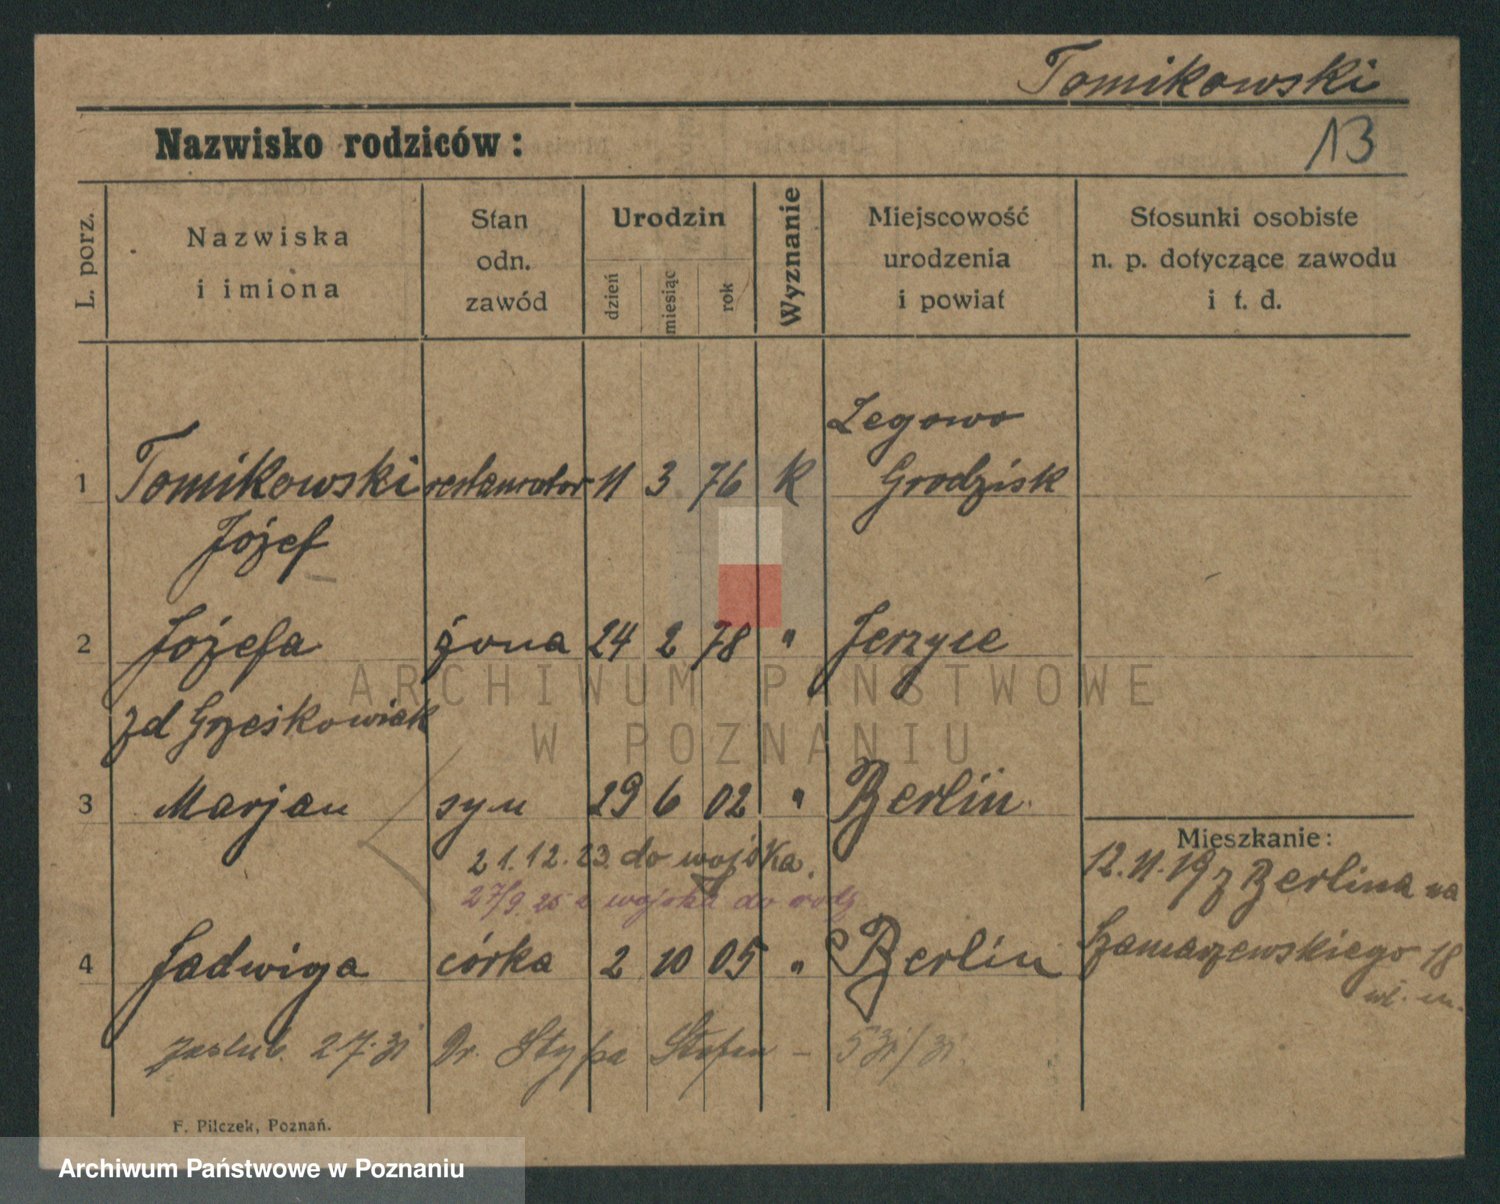 Tomikowski
13
Nazwisko rodziców:
L. porz.
Nazwiska
i imiona
Stan
odn.
zawód
Urodzin
dzień
miesiąc
rok
Wyznanie
Miejscowość
urodzenia
i powiat
Stosunki osobiste
n. p. dotyczące zawodu
i t. d.
Legowo
1 Tomikowski restaurator 11 3 76 K Grodzisk
Józef
2 Józefa żona 24 2 78 " Jerzyce
zd Grześkowiak
3 Marjan syn 29 6 02 " Berlin
21.12.23. do wojska.
27/9 25 z wojska do rodz
4 Jadwiga córka 2 10 05 " Berlin
zaslub. 27.31 Dr. Stypa Stefan -
Mieszkanie:
12.11.19 z Berlina na
Szamarzewskiego 18
wł. m.
F. Pilczek, Poznań.
ARCHIWUM PAŃSTWOWE
W POZNANIU
Archiwum Państwowe w Poznaniu